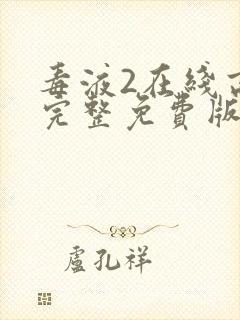 毒液2在线
完整免費版
盧孔祥